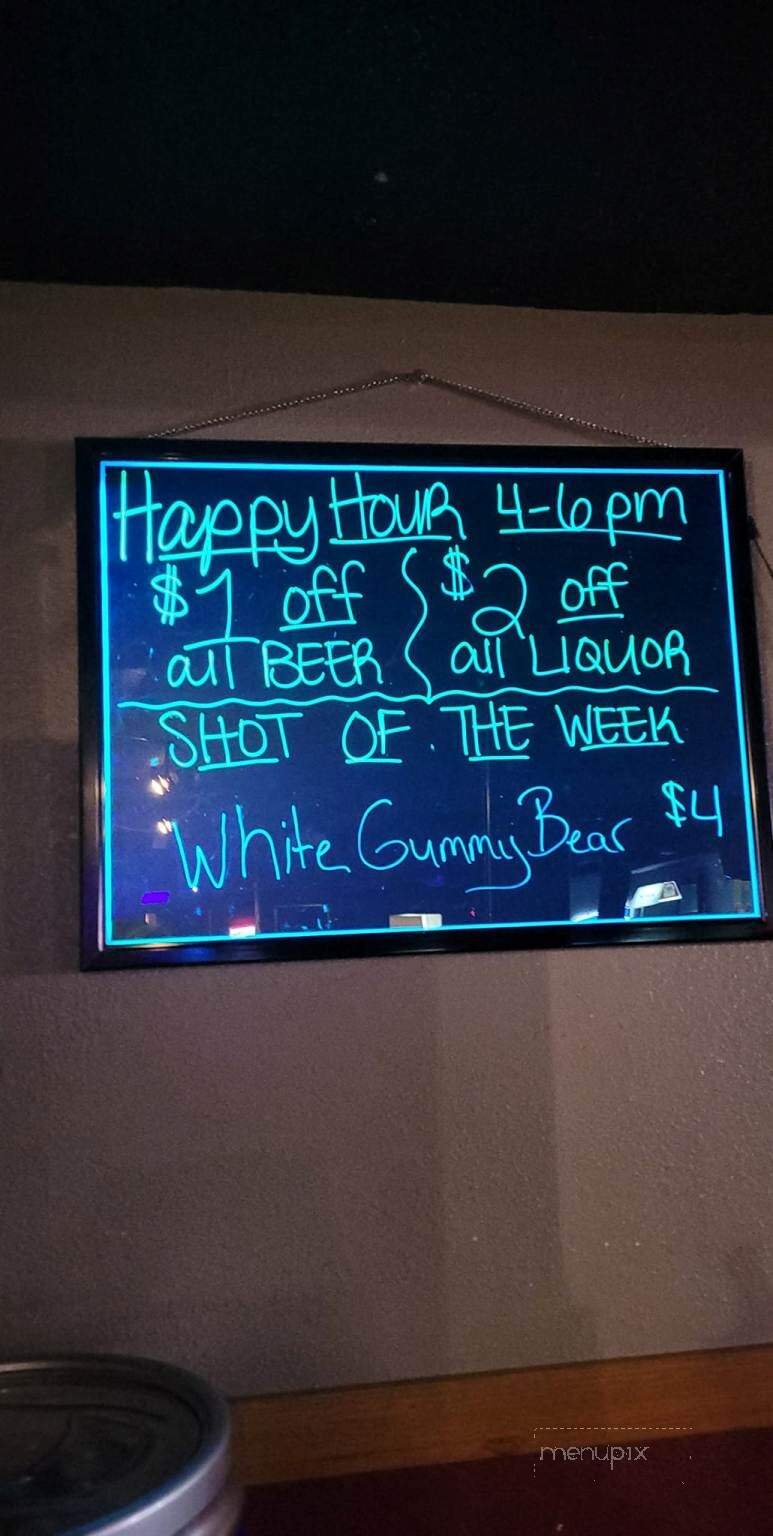 Happy Hour 4-6pm
$1 off { $2 off
all BEER all LIQUOR
SHOT OF THE WEEK
White Gummy Bear $4
menupix